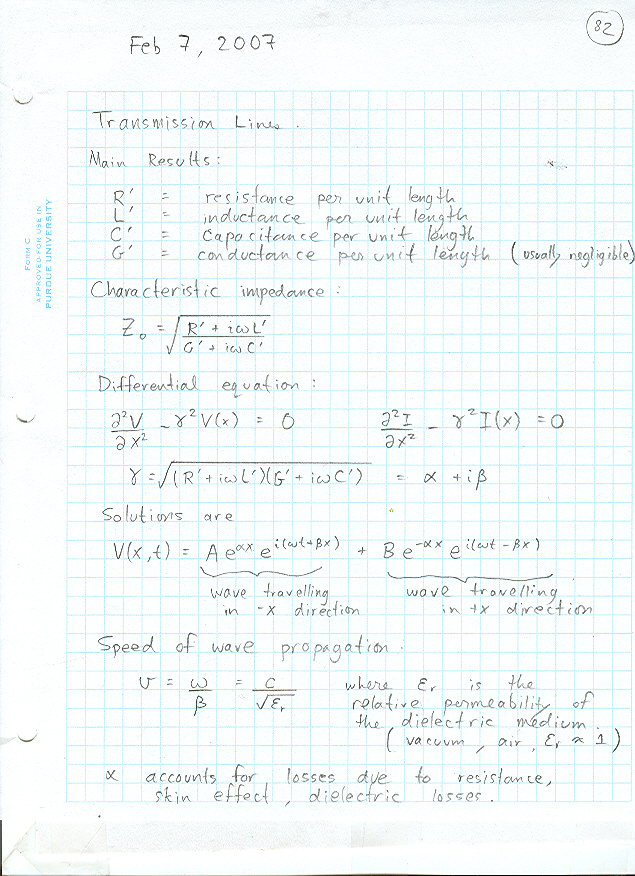 82
Feb 7, 2007
FORM C
APPROVED FOR USE IN
PURDUE UNIVERSITY
Transmission Lines.
Main Results:
R' = resistance per unit length
L' = inductance per unit length
C' = capacitance per unit length
G' = conductance per unit length (usually negligible)
Characteristic impedance:
Z₀ = √((R' + iωL')/(G' + iωC'))
Differential equation:
∂²V/∂x² - γ²V(x) = 0    ∂²I/∂x² - γ²I(x) = 0
γ = √((R' + iωL')(G' + iωC')) = α + iβ
Solutions are
V(x,t) = A e^{αx} e^{i(ωt+βx)} + B e^{-αx} e^{i(ωt-βx)}
wave travelling    wave travelling
in -x direction    in +x direction
Speed of wave propagation.
v = ω/β = c/√εᵣ    where εᵣ is the
relative permeability of
the dielectric medium.
(vacuum, air, εᵣ ≈ 1)
α accounts for losses due to resistance,
skin effect, dielectric losses.